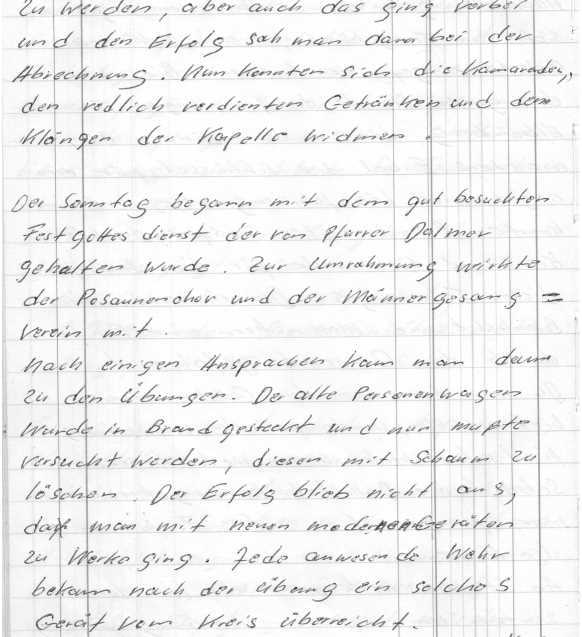 zu werden, aber auch das ging vorbei
und den Erfolg sah man dann bei der
Abrechnung. Nun konnten sich die Kamaraden,
den redlich verdienten Getränken und dem
Klängen der Kapelle widmen.
Der Sonntag begann mit dem gut besuchten
Festgottesdienst der von Pfarrer Dalmer
gehalten wurde. Zur Umrahmung wirkte
der Posaunenchor und der Männergesang =
verein mit.
Nach einigen Ansprachen kam man dann
zu den Übungen. Der alte Personenwagen
wurde in Brand gesteckt und nun mußte
versucht werden, diesen mit Schaum zu
löschen. Der Erfolg blieb nicht aus,
daß man mit neuen modernen Geräten
zu Werke ging. Jede anwesende Wehr
bekam nach der Übung ein solches
Gerät vom Kreis überreicht.